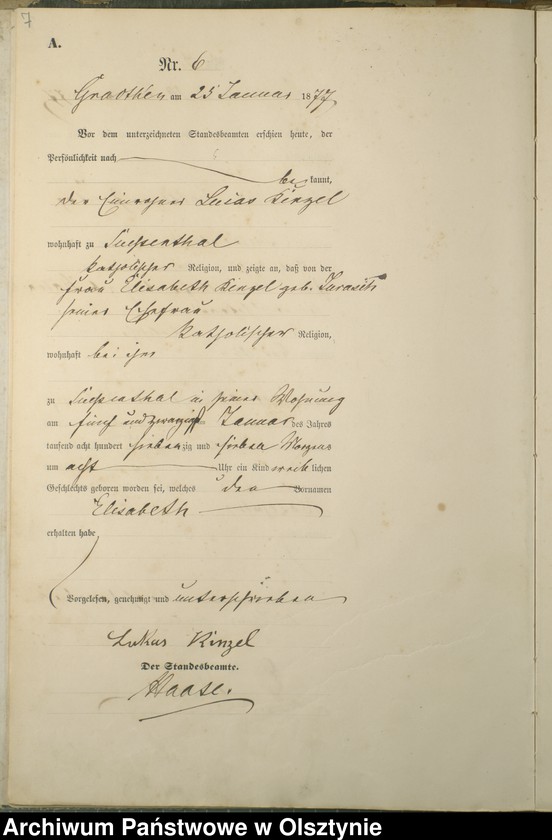 7
A.
Nr. 6
am 25 Januar 1877
Vor dem unterzeichneten Standesbeamten erschien heute, der
Persönlichkeit nach
be kannt,
der Einwohner Lucas Kinzel
wohnhaft zu
katholischer Religion, und zeigte an, daß von der
Frau Elisabeth Kinzel geb.
seiner Ehefrau
katholischer Religion,
wohnhaft bei ihm
zu in seiner Wohnung
am fünf und zwanzigsten Januar des Jahres
tausend acht hundert siebenzig und sieben Morgens
um acht Uhr ein Kind weib lichen
Geschlechts geboren worden sei, welches den Vornamen
Elisabeth
erhalten habe
Vorgelesen, genehmigt und unterschrieben
Lukas Kinzel
Der Standesbeamte.
Haase.
Archiwum Państwowe w Olsztynie